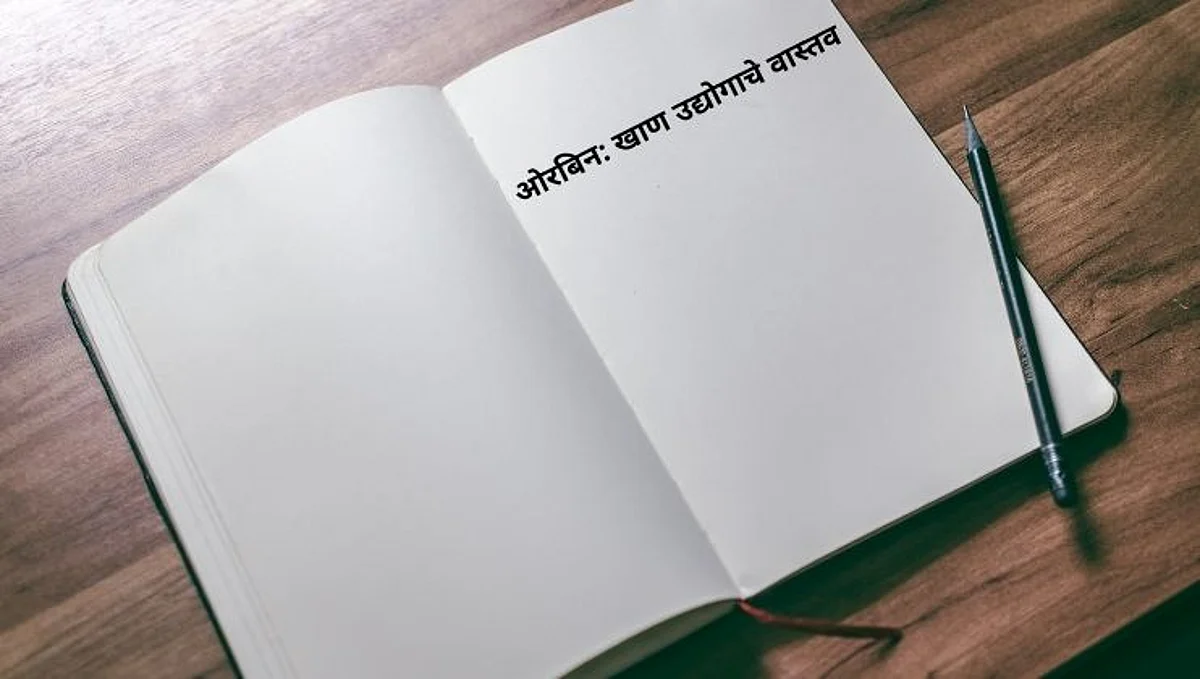 ओरबिन: खाण उद्योगाचे वास्तव